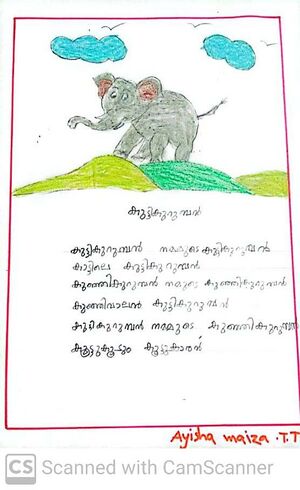 കുട്ടികുറുമ്പൻ
കുട്ടികുറുമ്പൻ നമ്മുടെ കുട്ടികുറുമ്പൻ
കാട്ടിലെ കുട്ടികുറുമ്പൻ
കുഞ്ഞികുറുമ്പൻ നമ്മുടെ കുഞ്ഞികുറുമ്പൻ
കുഞ്ഞിവാലൻ കുട്ടികുറുമ്പൻ
കുട്ടികുറുമ്പൻ നമ്മുടെ കുഞ്ഞികുറുമ്പൻ
കൂട്ടുകൂടും കൂട്ടുകാരൻ
Ayisha maiza .T.T
CS Scanned with CamScanner